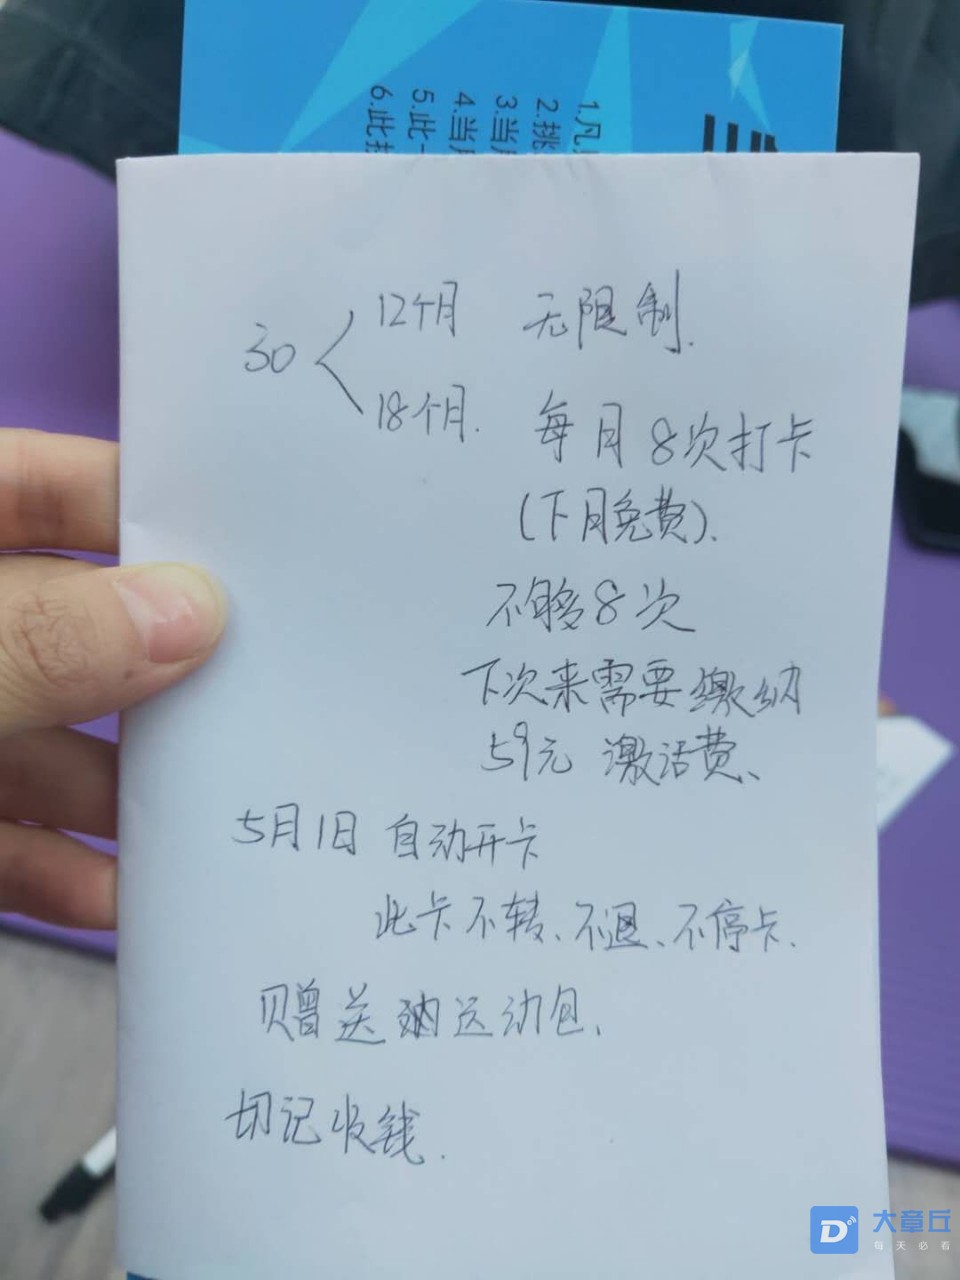 1.凡
2.挑
3.当月
4.当月
5.此一
6.此
30
12个月 无限制.
18个月. 每月8次打卡
(下月免费).
不够8次
下次来需要缴纳
59元 激活费、
5月1日 自动开卡
此卡不转、不退、不停卡.
赠送 运动包.
切记收钱.
D
大章丘
每天必看